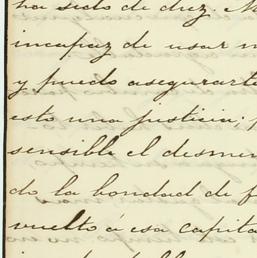 ha sido de diez. N
incapaz de usar m
y puedo asegurarte
esto una justicia; p
sensible el desmer
do la bondad de f
vuelto á esa capita